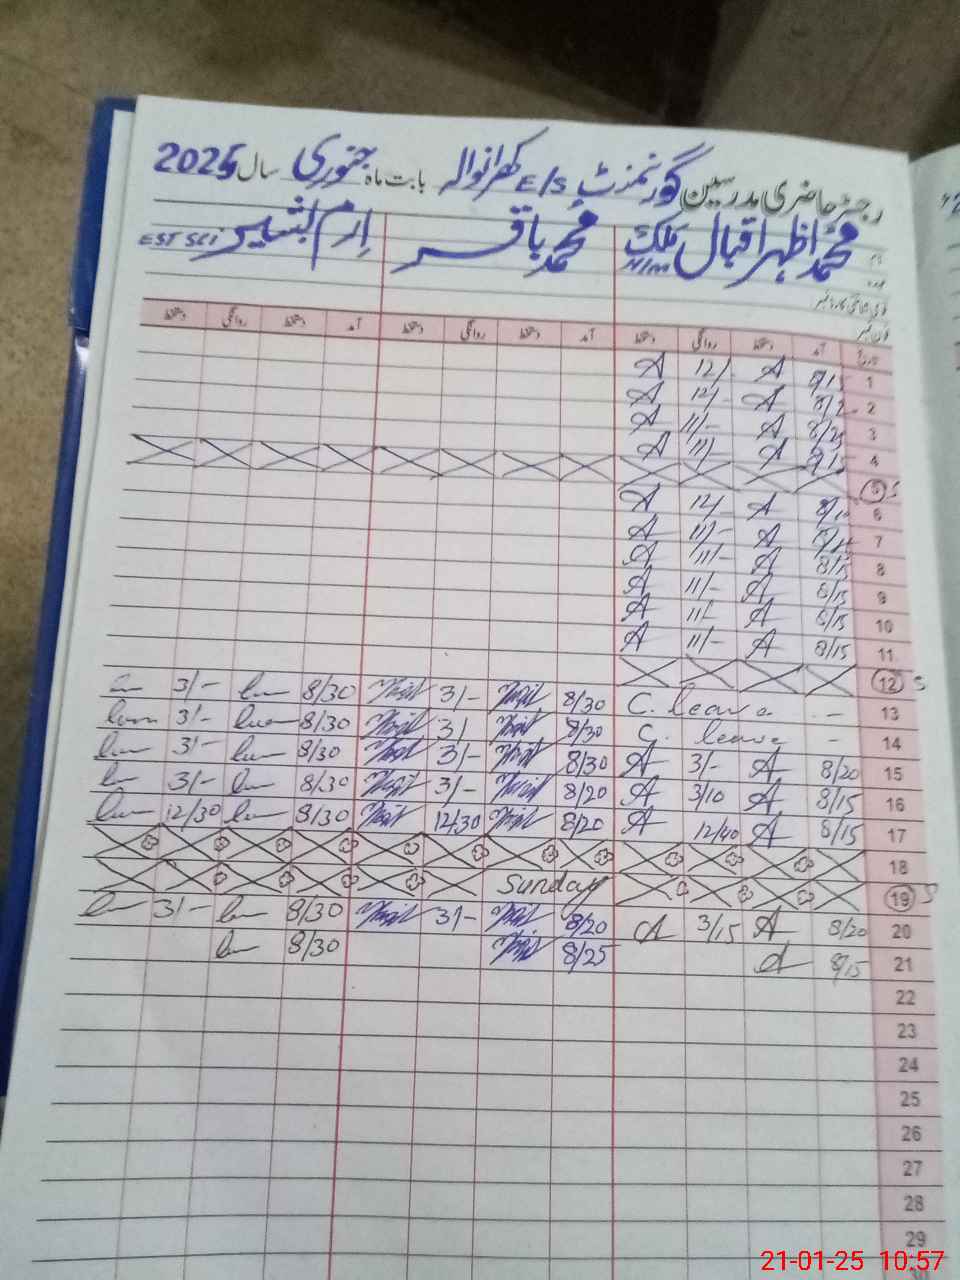 رجسٹر حاضری مدرسین گورنمنٹ E/S کھرانوالہ بابت ماہ جنوری سال 2025
نام محمد اظہر اقبال ملک محمد باقر ارم بشیر
عہدہ H/M EST SCI
قومی شناختی کارڈ نمبر
فون نمبر
تاریخ آمد دستخط روانگی دستخط آمد دستخط روانگی دستخط آمد دستخط روانگی دستخط
1 8/15 A 12/- A
2 A 12/- A
3 8/25 A 11/- A
4 8/15 A 11/- A
5 S
6 8/15 A 12/- A
7 8/15 A 11/- A
8 8/15 A 11/- A
9 8/15 A 11/- A
10 8/15 A 11/- A
11 8/15 A 11/- A
12 S
13 - C. leave 8/30 3/- 8/30 3/-
14 - C. leave 8/30 3/ 8/30 3/-
15 8/20 A 3/- A 8/30 3/- 8/30 3/-
16 8/15 A 3/10 A 8/20 3/- 8/30 3/-
17 8/15 A 12/40 A 8/20 12/30 8/30 12/30
18
19 S Sunday
20 8/20 A 3/15 A 8/20 3/- 8/30 3/-
21 8/15 A 8/25 8/30
22
23
24
25
26
27
28
29
21-01-25 10:57